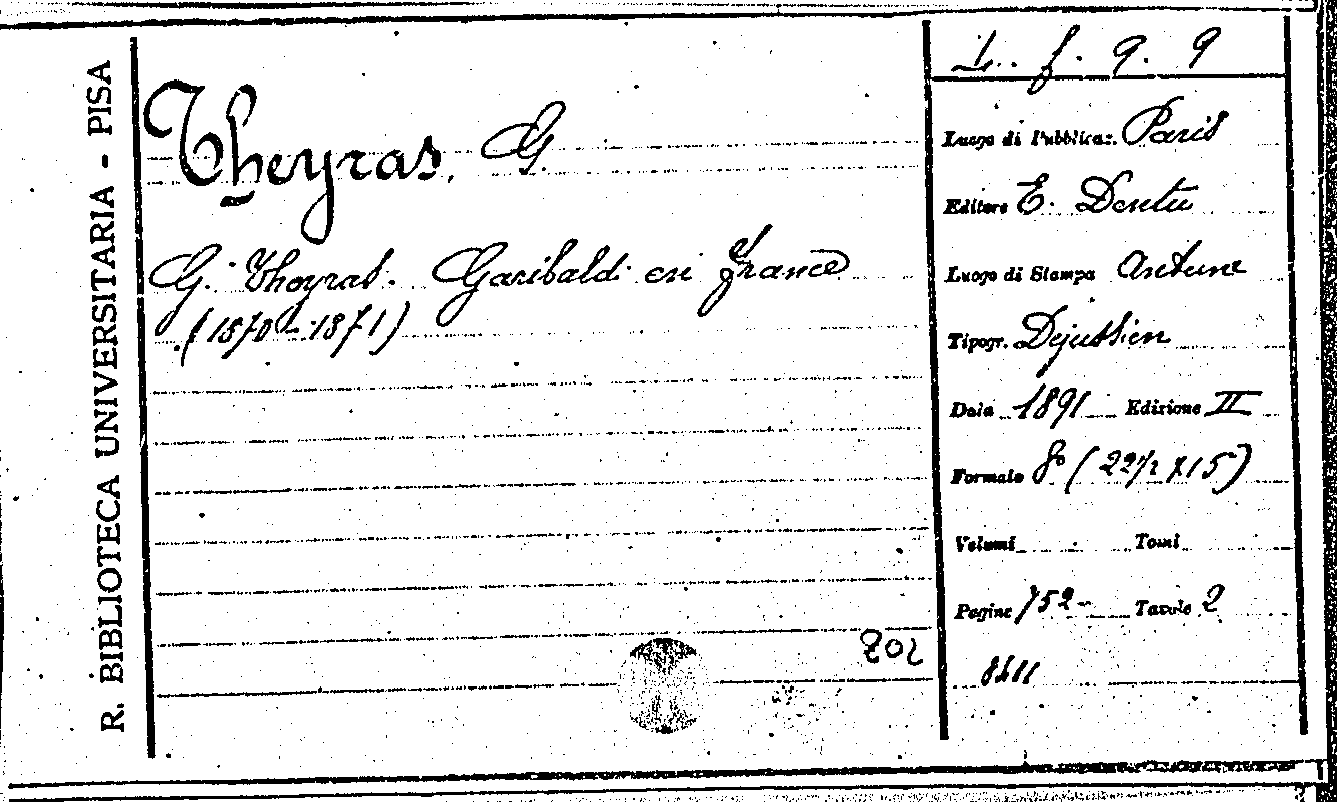 R. BIBLIOTECA UNIVERSITARIA - PISA
Theyras, G.
G. Theyras. Garibaldi en France
(1870-1871)
202
L. f. 9. 9
Luogo di Pubblicaz. Paris
Editore E. Dentu
Luogo di Stampa Autun
Tipogr. Dejussieu
Data 1891 Edizione II
Formato 8° (22½ x 15)
Volumi Tomi
Pagine 752- Tavole 2